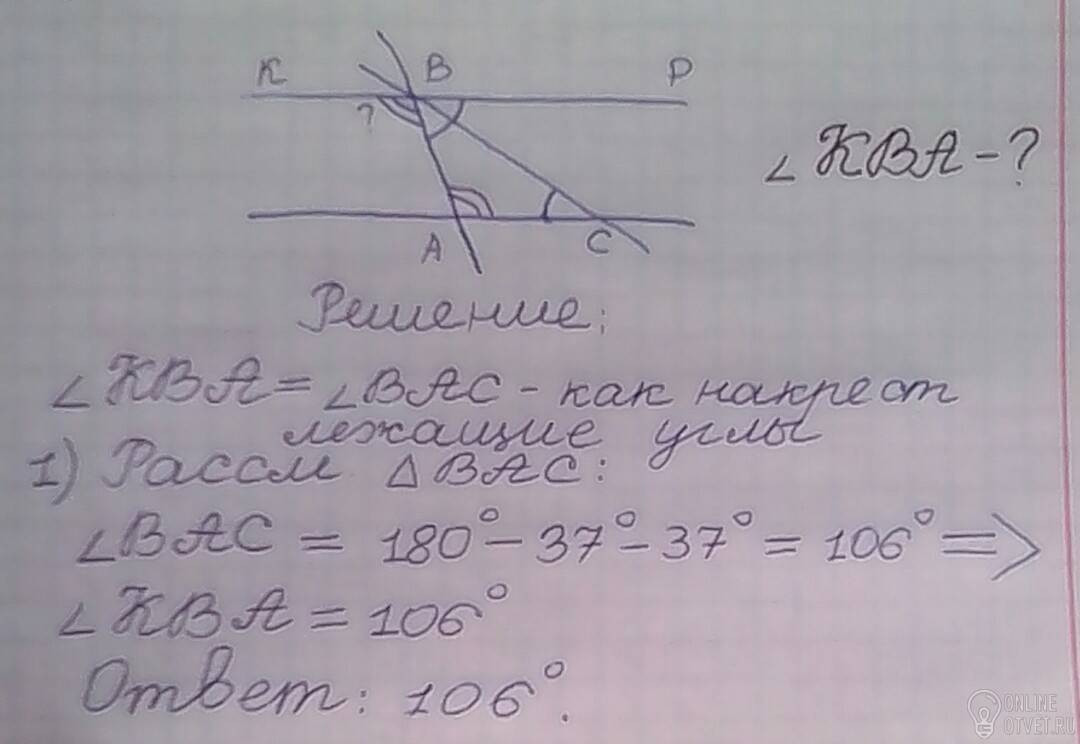 K B P
?
∠KBA - ?
A C
Решение:
∠KBA = ∠BAC - как накрест
лежащие углы
1) Рассм △BAC:
∠BAC = 180° - 37° - 37° = 106° =>
∠KBA = 106°
Ответ: 106°.
ONLINE
OTVET.RU